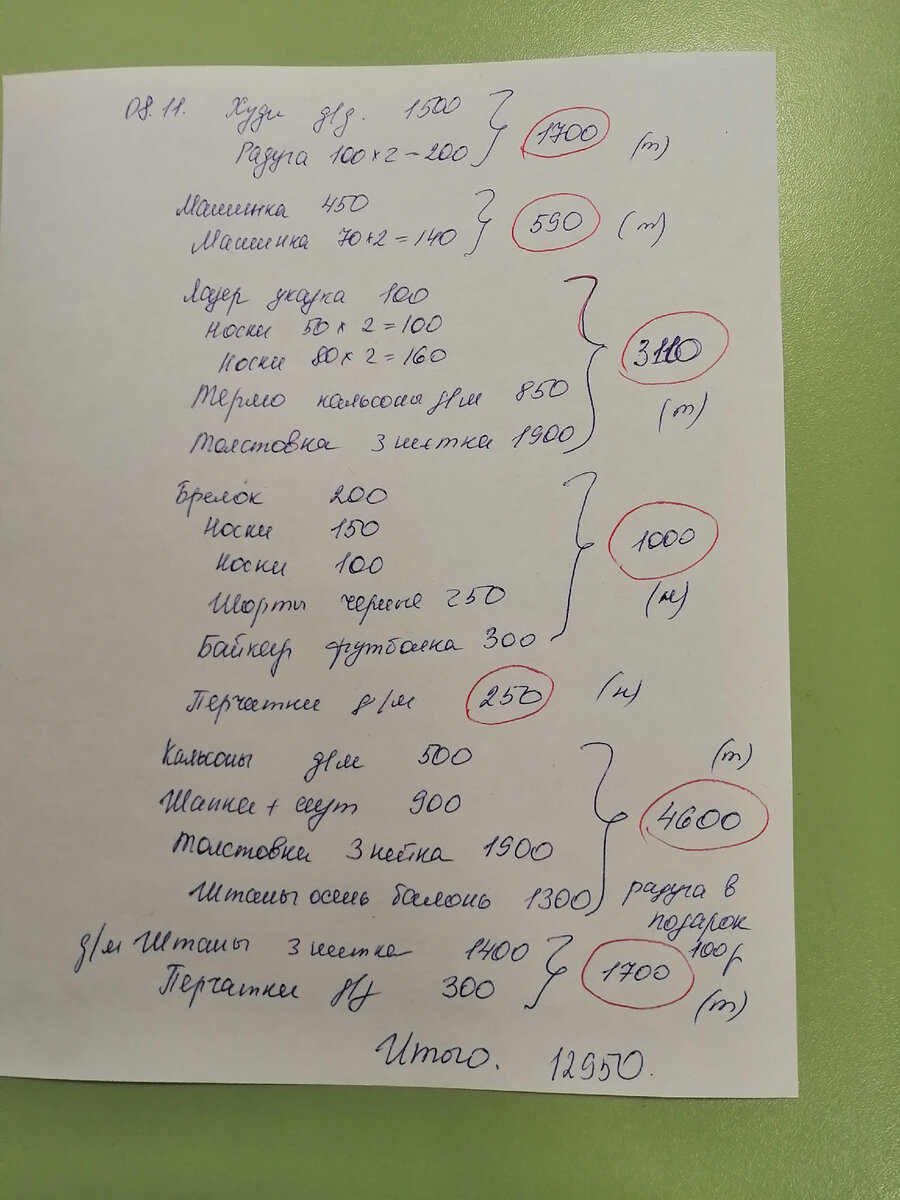 08.11. Худи д/д. 1500 1700 (т)
Радуга 100×2-200
Машинка 450 590 (н)
Машинка 70×2=140
Лазер указка 100
Носки 50×2=100
Носки 80×2=160 3110
Термо кальсоны д/м 850 (т)
Толстовка 3 нитка 1900
Брелок 200
Носки 150 1000
Носки 100
Шорты черные 250 (н)
Байкер футболка 300
Перчатки д/м 250 (н)
Кальсоны д/м 500 (т)
Шапка + снуд 900 4600
Толстовка 3 нитка 1900
Штаны осень балонь 1300 радуга в
подарок
100 р
д/м Штаны 3 нитка 1400 1700
Перчатки д/д 300 (т)
Итого. 12950.